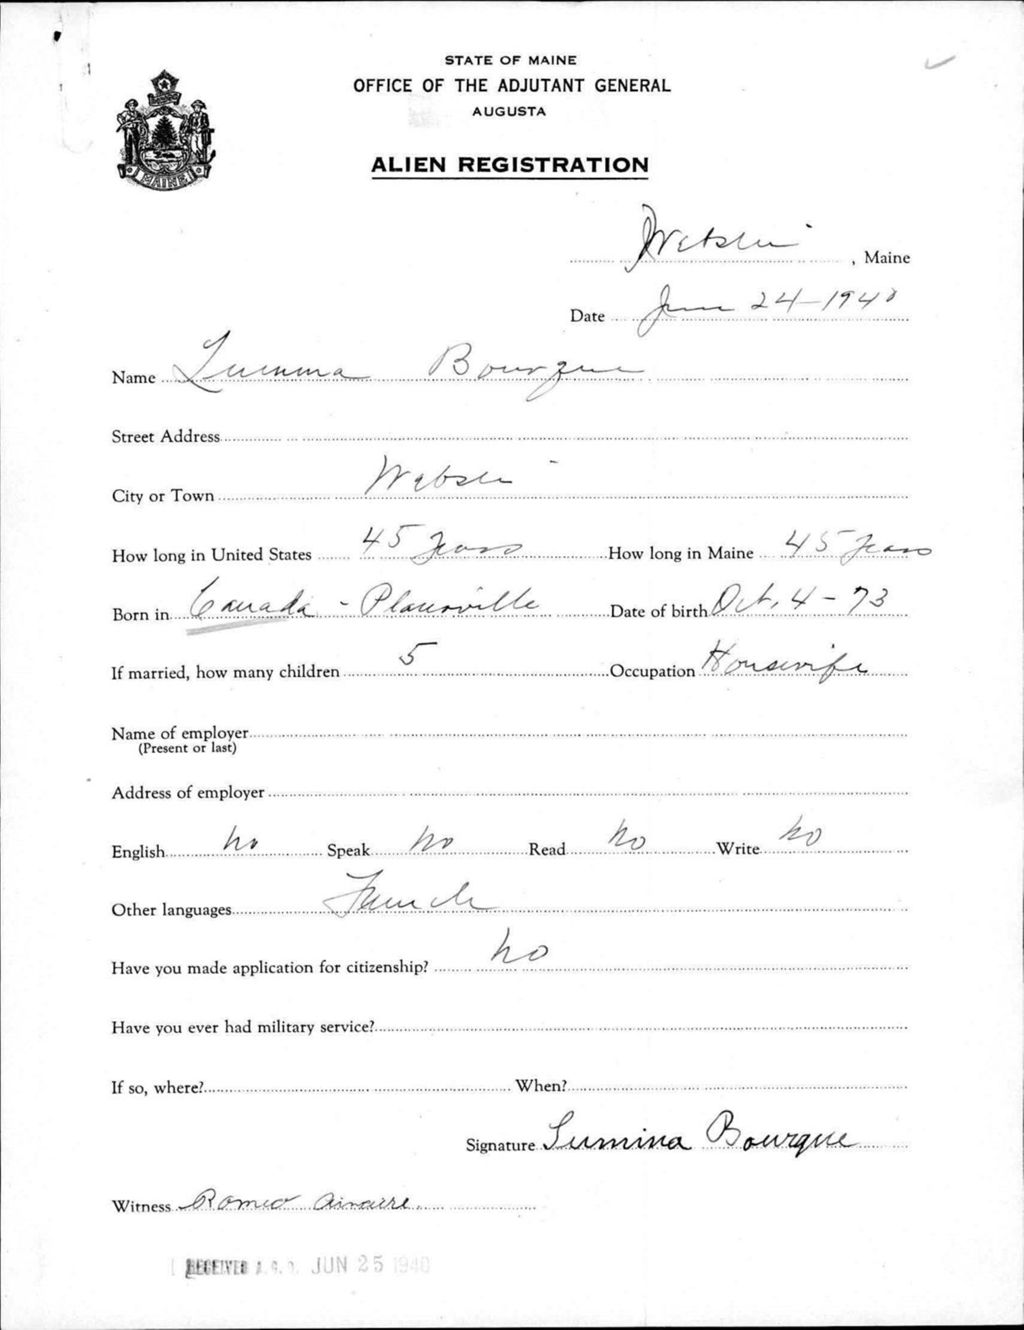 STATE OF MAINE
OFFICE OF THE ADJUTANT GENERAL
AUGUSTA
ALIEN REGISTRATION
MAINE
Webster, Maine
Date June 24-1940
Name Lumina Bourgue
Street Address
City or Town Webster
How long in United States 45 Years How long in Maine 45 Years
Born in Canada - Plassville Date of birth Oct. 4 - 73
If married, how many children 5 Occupation Housewife
Name of employer
(Present or last)
Address of employer
English No Speak No Read No Write No
Other languages French
Have you made application for citizenship? No
Have you ever had military service?
If so, where? When?
Signature Lumina Bourgue
Witness Romeo
RECEIVED A.G.O. JUN 25 1940